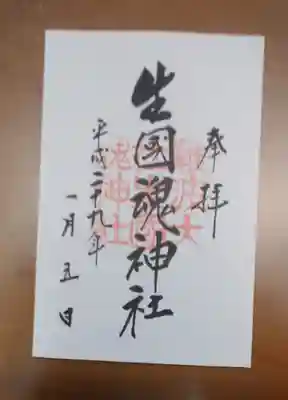 奉拝
生國魂神社
平成二十九年
一月五日